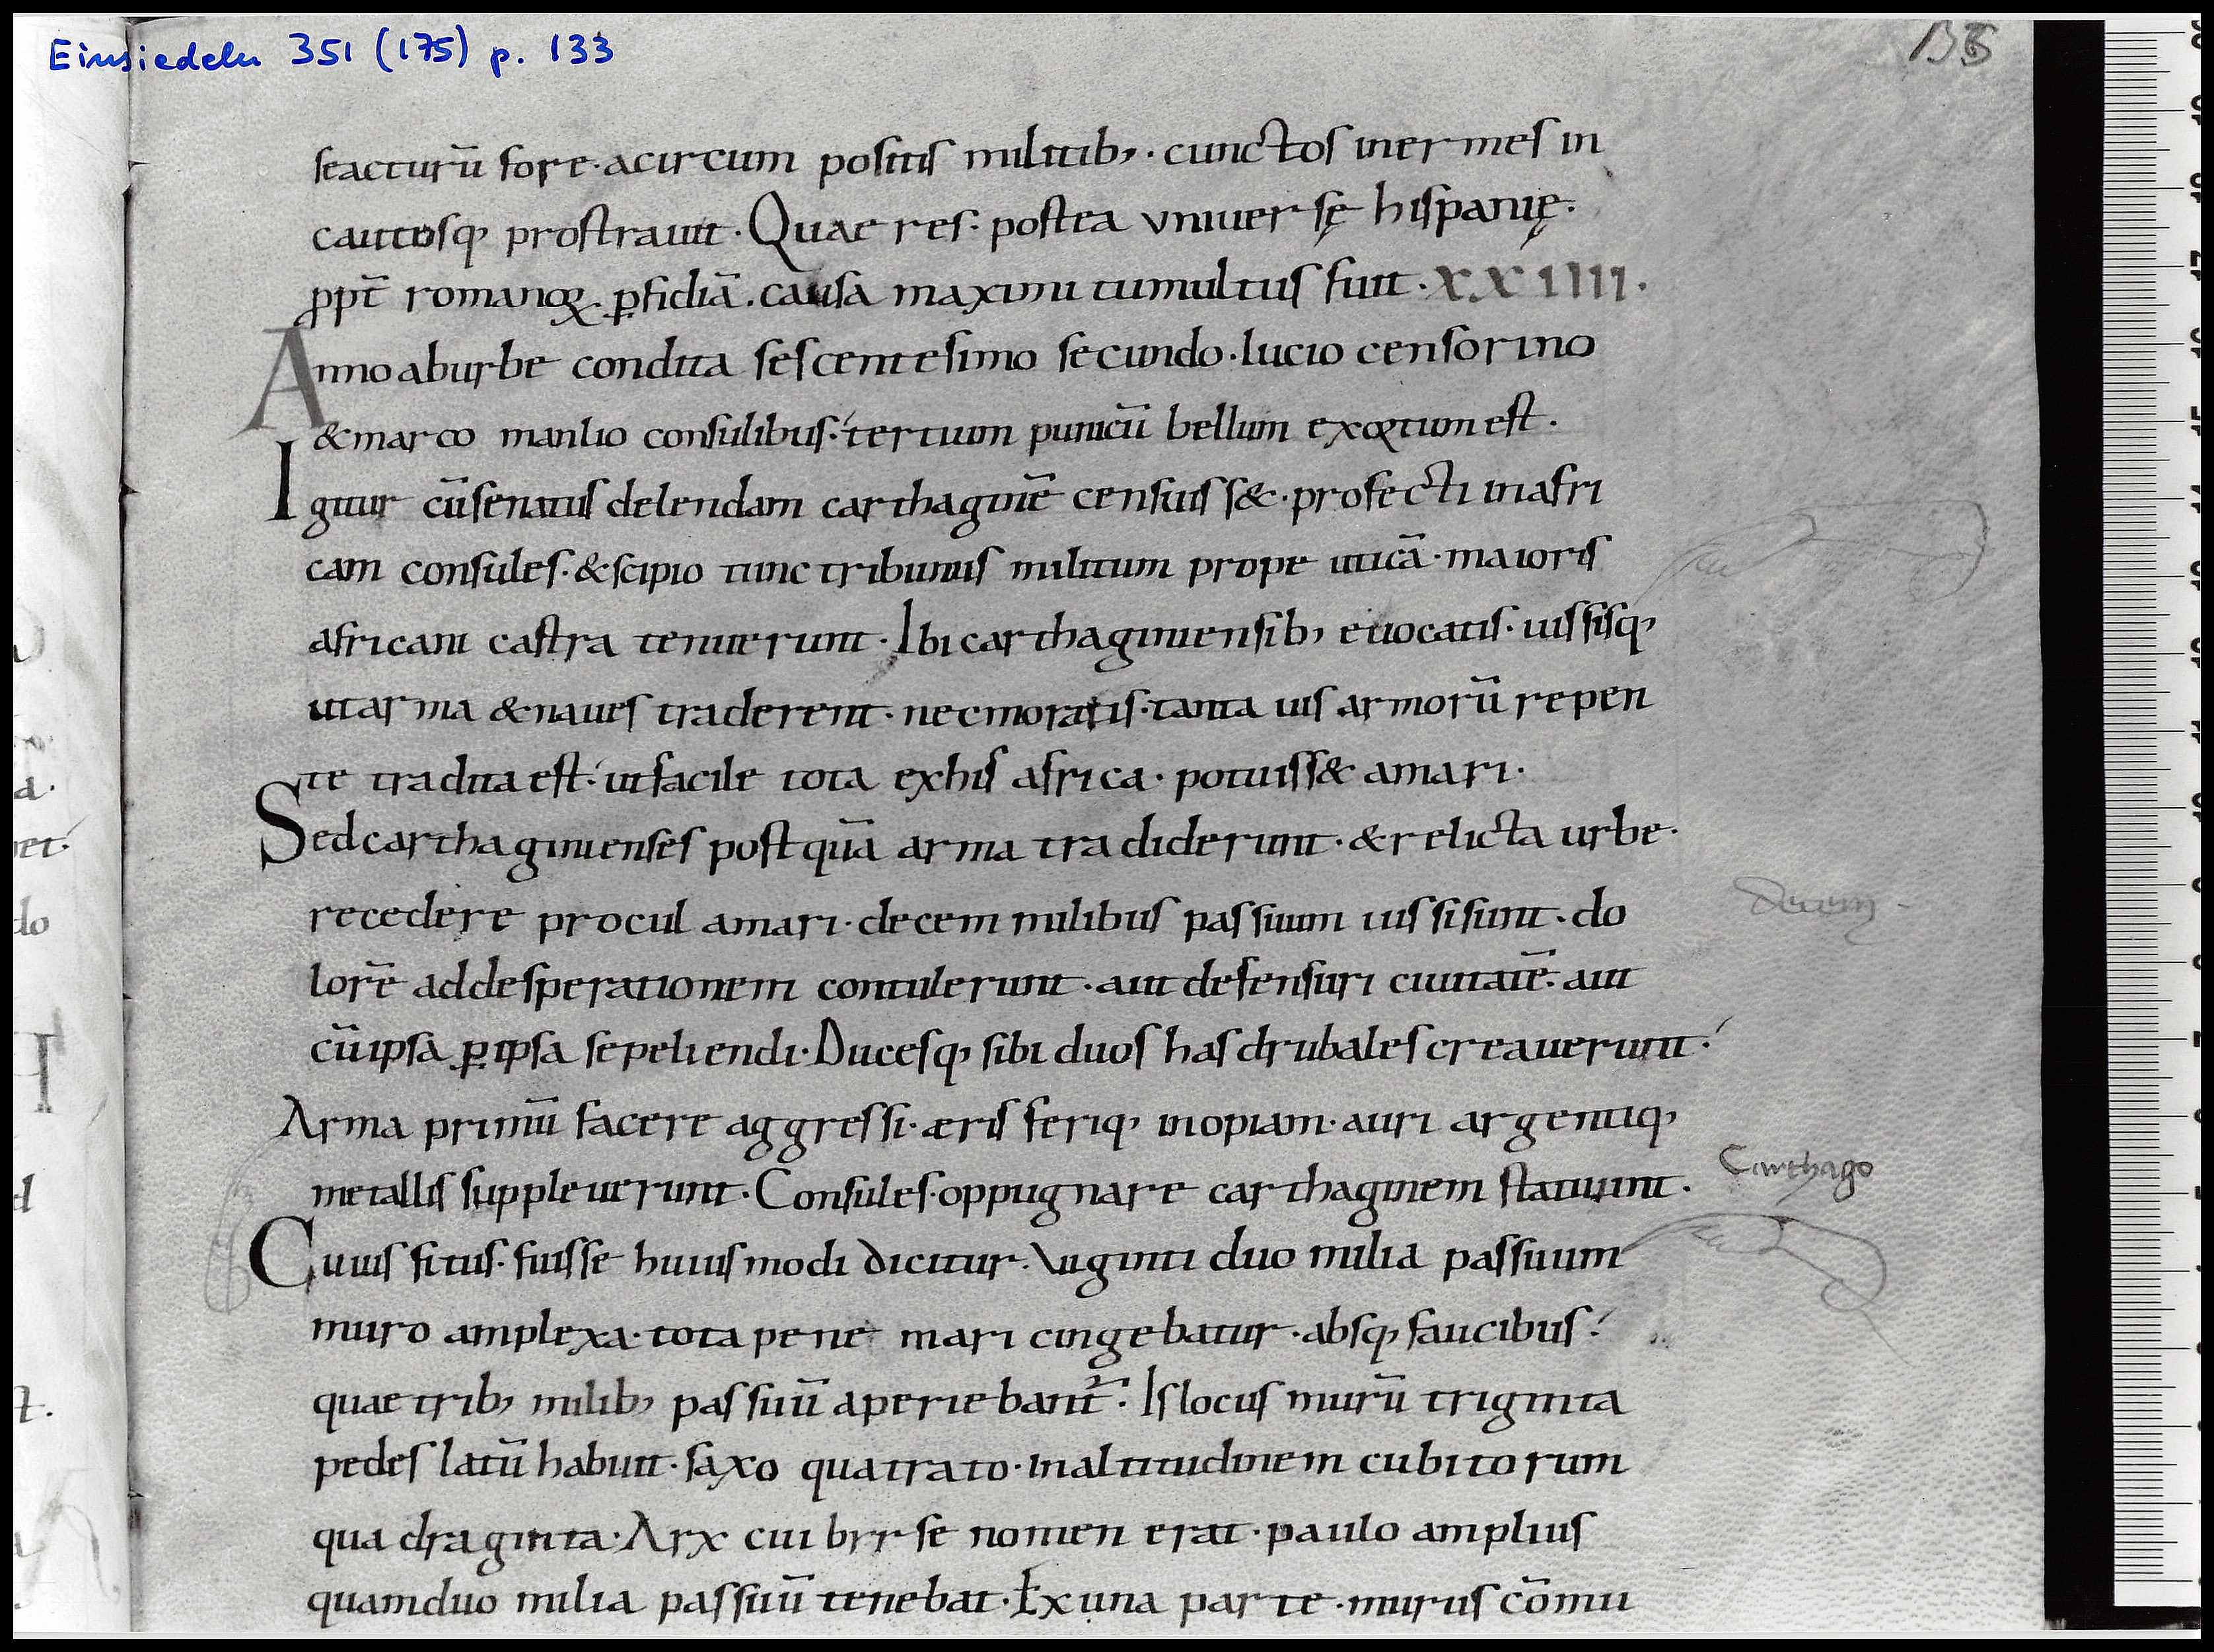 Einsiedeln 351 (175) p. 133
seacturū fore·acircum positis militib;·cunctos inermes in
cautosq; prostrauit·Quae res·postea vniuersę hispanię·
ꝓpt̄ romanoꝝ·ꝑfidiā·causa maximi tumultus fuit·XXIIII·
Anno aburbe condita sescentesimo secundo·lucio censorino
&marco manlio consulibus·tertium punicū bellum exortum est·
Igitur cūsenatus delendam carthaginē censuiss&·profecti inafri
cam consules·&scipio tunc tribunus militum prope uticā·maioris
africani castra tenuerunt·Ibi carthaginiensib; euocatis·iussisq;
utarma &naues traderent·necmoratis·tanta uis armorū repen
te tradita est·utfacile tota exhis africa·potuiss& amari·
Sedcarthaginienses postquā arma tradiderunt·&relicta urbe·
recedere procul amari·decem milibus passuum iussisunt·do
lorē addesperationem contulerunt·aut defensuri ciuitatē·aut
cūipsa ꝑipsā sepeliendi·Ducesq; sibi duos hasdrubales creauerunt·
Arma primū facere aggressi·æris ferriq; inopiam·auri argentiq;
metallis suppleuerunt·Consules·oppugnare carthaginem statuunt·
Cuius situs·fuisse huiusmodi dicitur·Viginti duo milia passuum
muro amplexa·tota pene mari cingebatur·absq; faucibus·
quae trib; milib; passuū aperiebant̄·Is locus murū triginta
pedes latū habuit·saxo quatrato·inaltitudinem cubitorum
quadraginta·Arx cui byrse nomen erat·paulo amplius
quamduo milia passuū tenebat·Ex una parte·murus cōmu
Decem
Carthago